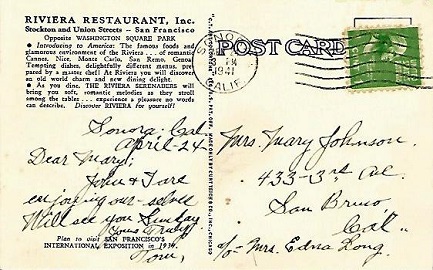 RIVIERA RESTAURANT, Inc.
Stockton and Union Streets — San Francisco
Opposite WASHINGTON SQUARE PARK
● Introducing to America: The famous foods and
glamorous environment of the Riviera . . . of romantic
Cannes, Nice, Monte Carlo, San Remo, Genoa!
Tempting dishes, delightfully different menus, pre-
pared by a master chef! At Riviera you will discover
an old world charm and new dining delight.
● As you dine, THE RIVIERA SERENADERS will
bring you soft, romantic melodies as they stroll
among the tables . . . experience a pleasure no words
can describe. Discover RIVIERA for yourself!
POST CARD
SONORA
1941
CALIF.
Sonora, Cal
April-24
Dear Mary;
John &
enjoying our-selves
Will see you Sunday.
Yours Truly
Plan to visit SAN FRANCISCO'S
INTERNATIONAL EXPOSITION in 1939.
Mrs. Mary Johnson.
433-3rd Av.
San Bruno
Cal
c/o- Mrs. Edna Long.